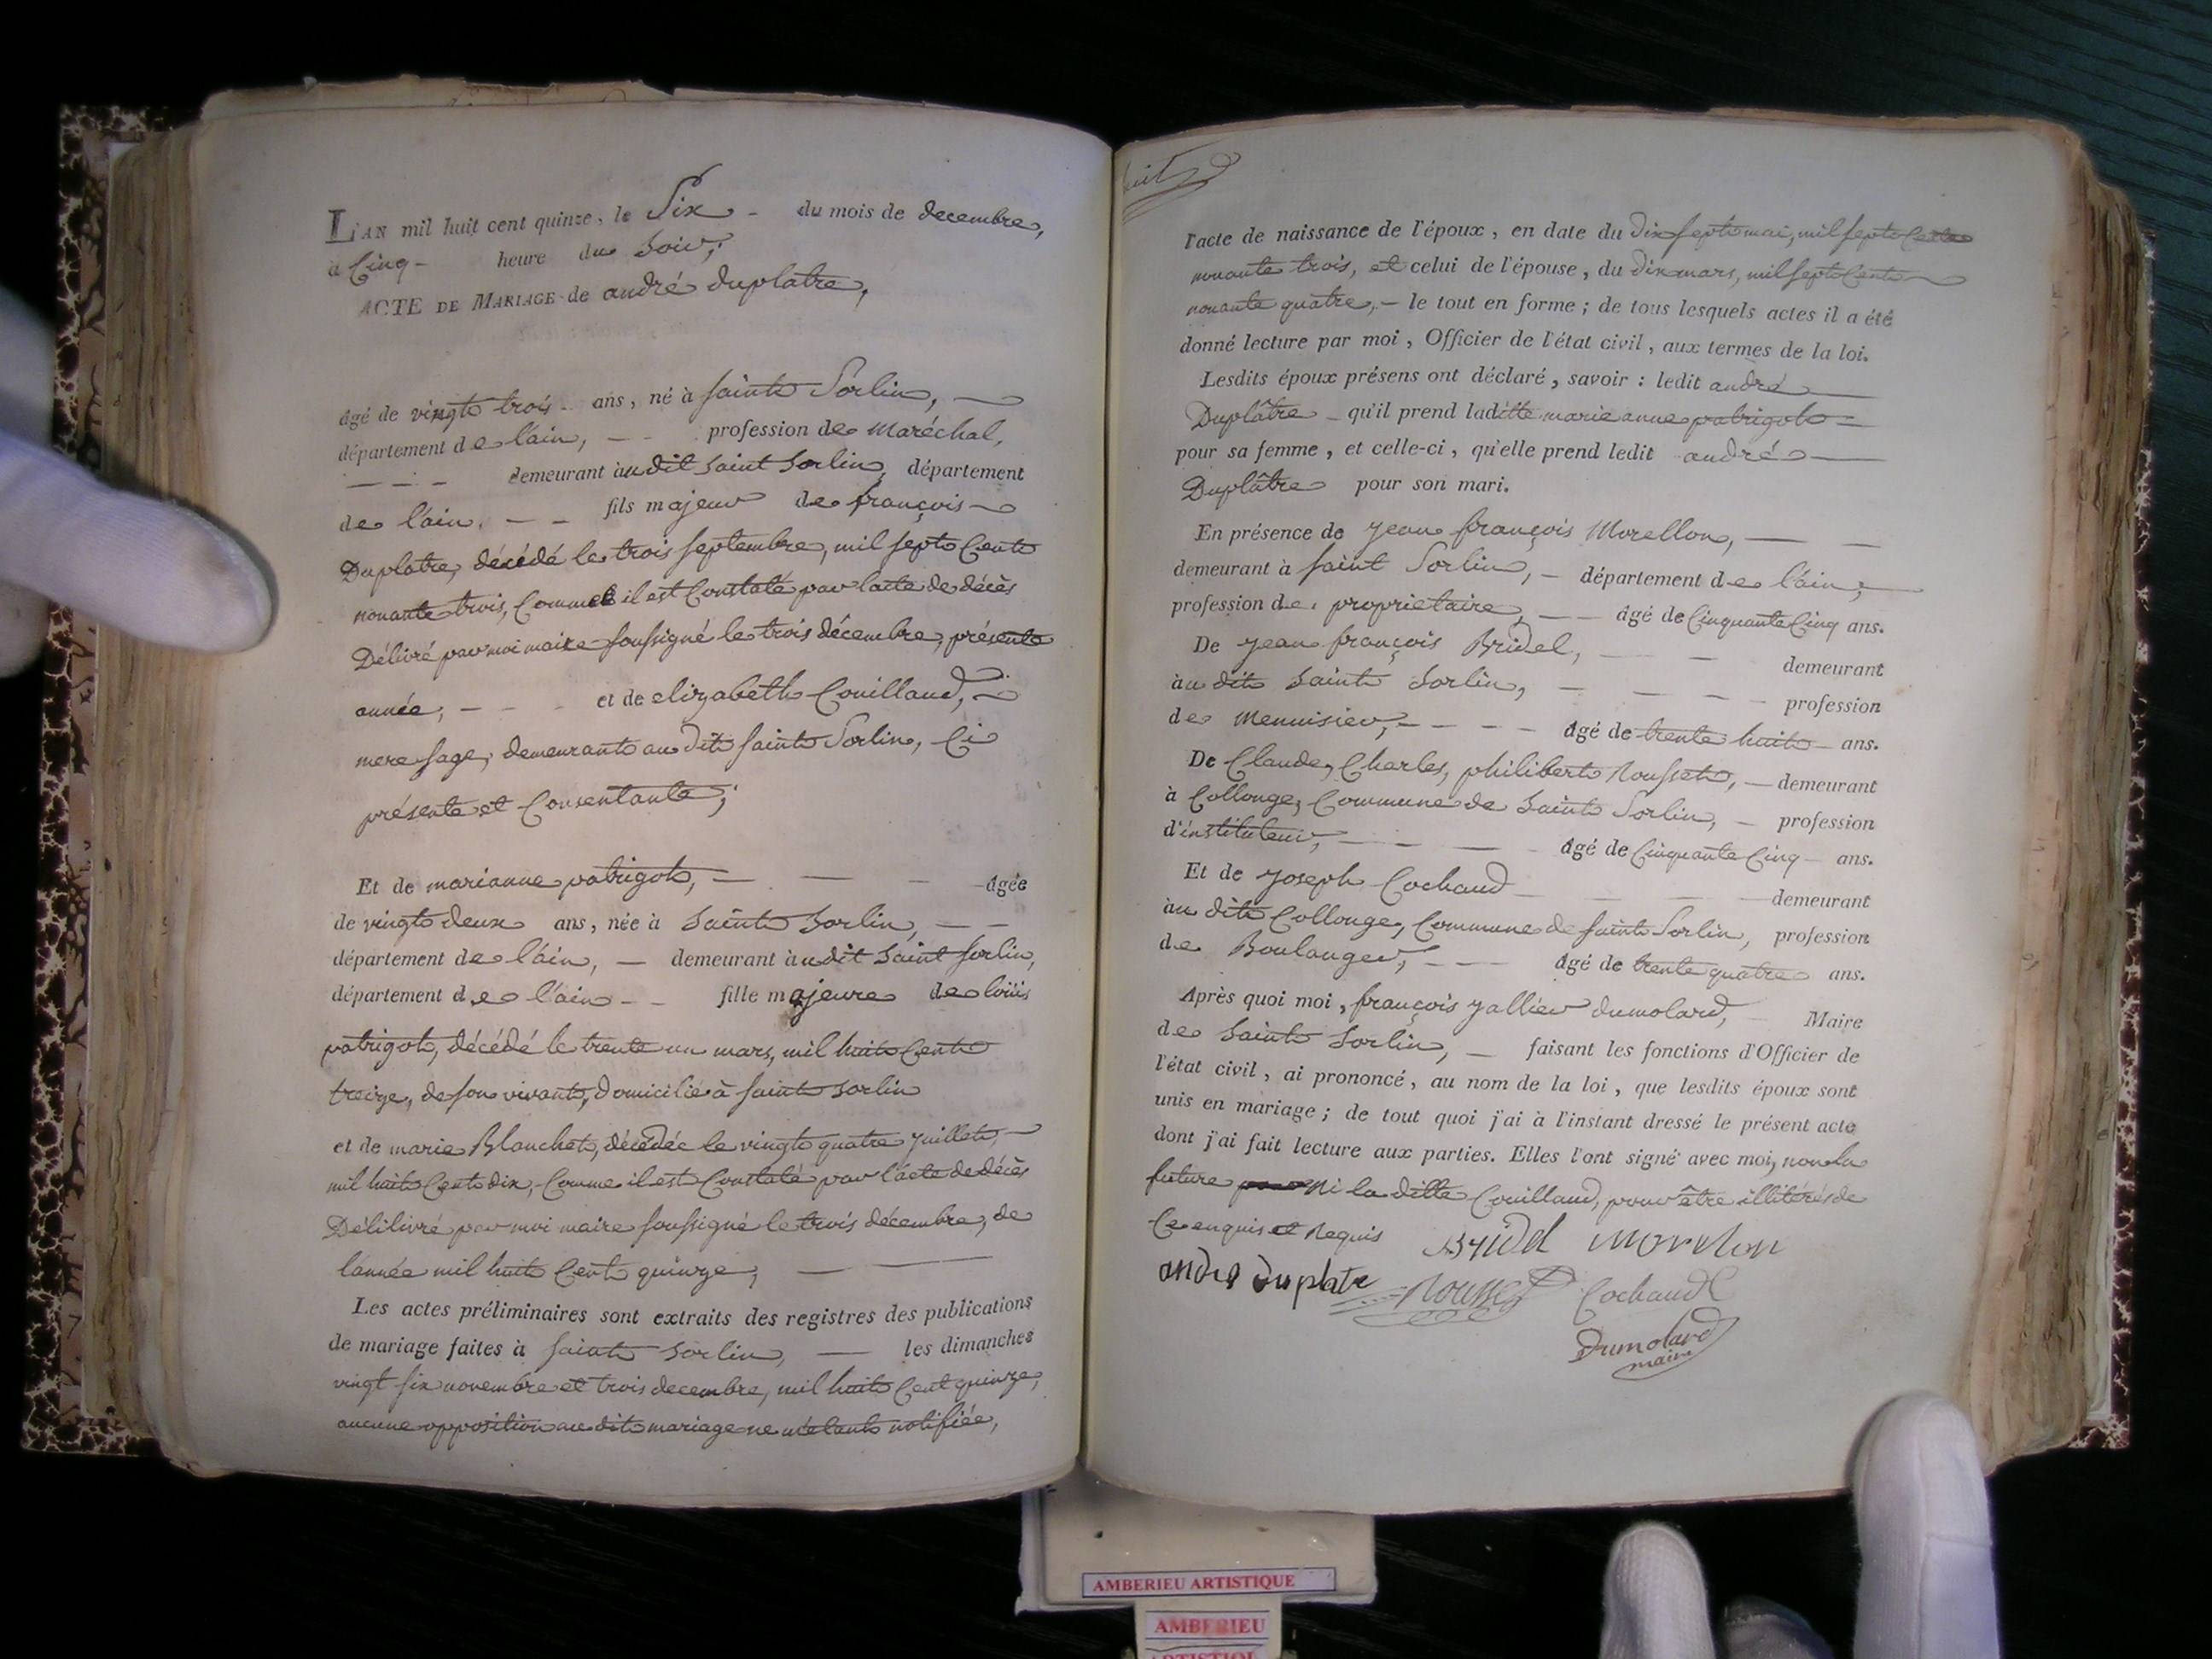 L'AN mil huit cent quinze, le Six - du mois de decembre,
à Cinq - heure du Soir;
ACTE DE MARIAGE de andré duplatre,
âgé de vingt trois - ans, né à saint Sorlin,
département de l'ain, - - profession de Maréchal,
- - - demeurant àudit Saint Sorlin, département
de l'ain, - - fils majeur de françois
Duplatre, décédé le trois septembre, mil sept Cent
nonante trois, Comme il est Constaté par l'acte de décès
Délivré par moi maire soussigné le trois décembre, présente
année, - - - et de elizabeth Couilloud,
mere sage, demeurant au dit saint Sorlin, Ci
présente et Consentante;
Et de marianne patrigot, - - - âgée
de vingt deux ans, née à Saint Sorlin, - -
département de l'ain, - demeurant àudit Saint Sorlin,
département de l'ain - - fille majeure de loüis
patrigot, décédé le trente un mars, mil huit Cent
treize, de son vivant, Domicilié à saint Sorlin
et de marie Blanchet, décédée le vingt quatre juillet,
mil huit Cent dix, Comme il est Constaté par l'acte de décès
Délilivré par moi maire soussigné le trois décembre, de
l'année mil huit Cent quinze,
Les actes préliminaires sont extraits des registres des publications
de mariage faites à saint Sorlin, - les dimanches
vingt six novembre et trois decembre, mil huit Cent quinze,
aucune opposition au dit mariage ne m'étant notifiée,
l'acte de naissance de l'époux, en date du Dix sept mai, mil sept Cent
nonante trois, et celui de l'épouse, du Dix mars, mil sept Cent
nonante quatre, - le tout en forme; de tous lesquels actes il a été
donné lecture par moi, Officier de l'état civil, aux termes de la loi.
Lesdits époux présens ont déclaré, savoir: ledit andré
Duplâtre - qu'il prend laditte marie anne patrigot
pour sa femme, et celle-ci, qu'elle prend ledit andré
Duplâtre pour son mari.
En présence de Jean françois Morellon, - -
demeurant à saint Sorlin, - département de l'ain,
profession de propriétaire, - âgé de Cinquante Cinq ans.
De Jean françois Bridel, - - demeurant
àu dit Saint Sorlin, - - - - profession
de Menuisier, - - - - âgé de trente huit - ans.
De Claude, Charles, philibert Rousset, - demeurant
à Collonge, Commune de Saint Sorlin, - profession
d'instituteur, - - - - âgé de Cinquante Cinq - ans.
Et de Joseph Cochaud - - - - demeurant
àu dit Collonge, Commune de saint Sorlin, profession
de Boulanger, - - - âgé de trente quatre ans.
Après quoi moi, françois Jallier dumolard, - Maire
de Saint Sorlin, - faisant les fonctions d'Officier de
l'état civil, ai prononcé, au nom de la loi, que lesdits époux sont
unis en mariage; de tout quoi j'ai à l'instant dressé le présent acte
dont j'ai fait lecture aux parties. Elles l'ont signé avec moi, non la
future ni la ditte Couilloud, pour être illitérés de
Ce enquis et Requis
Bridel morellon
andre Duplatre Rousset Cochaud
Dumolard
maire
AMBERIEU ARTISTIQUE
AMBERIEU
ARTISTIQUE